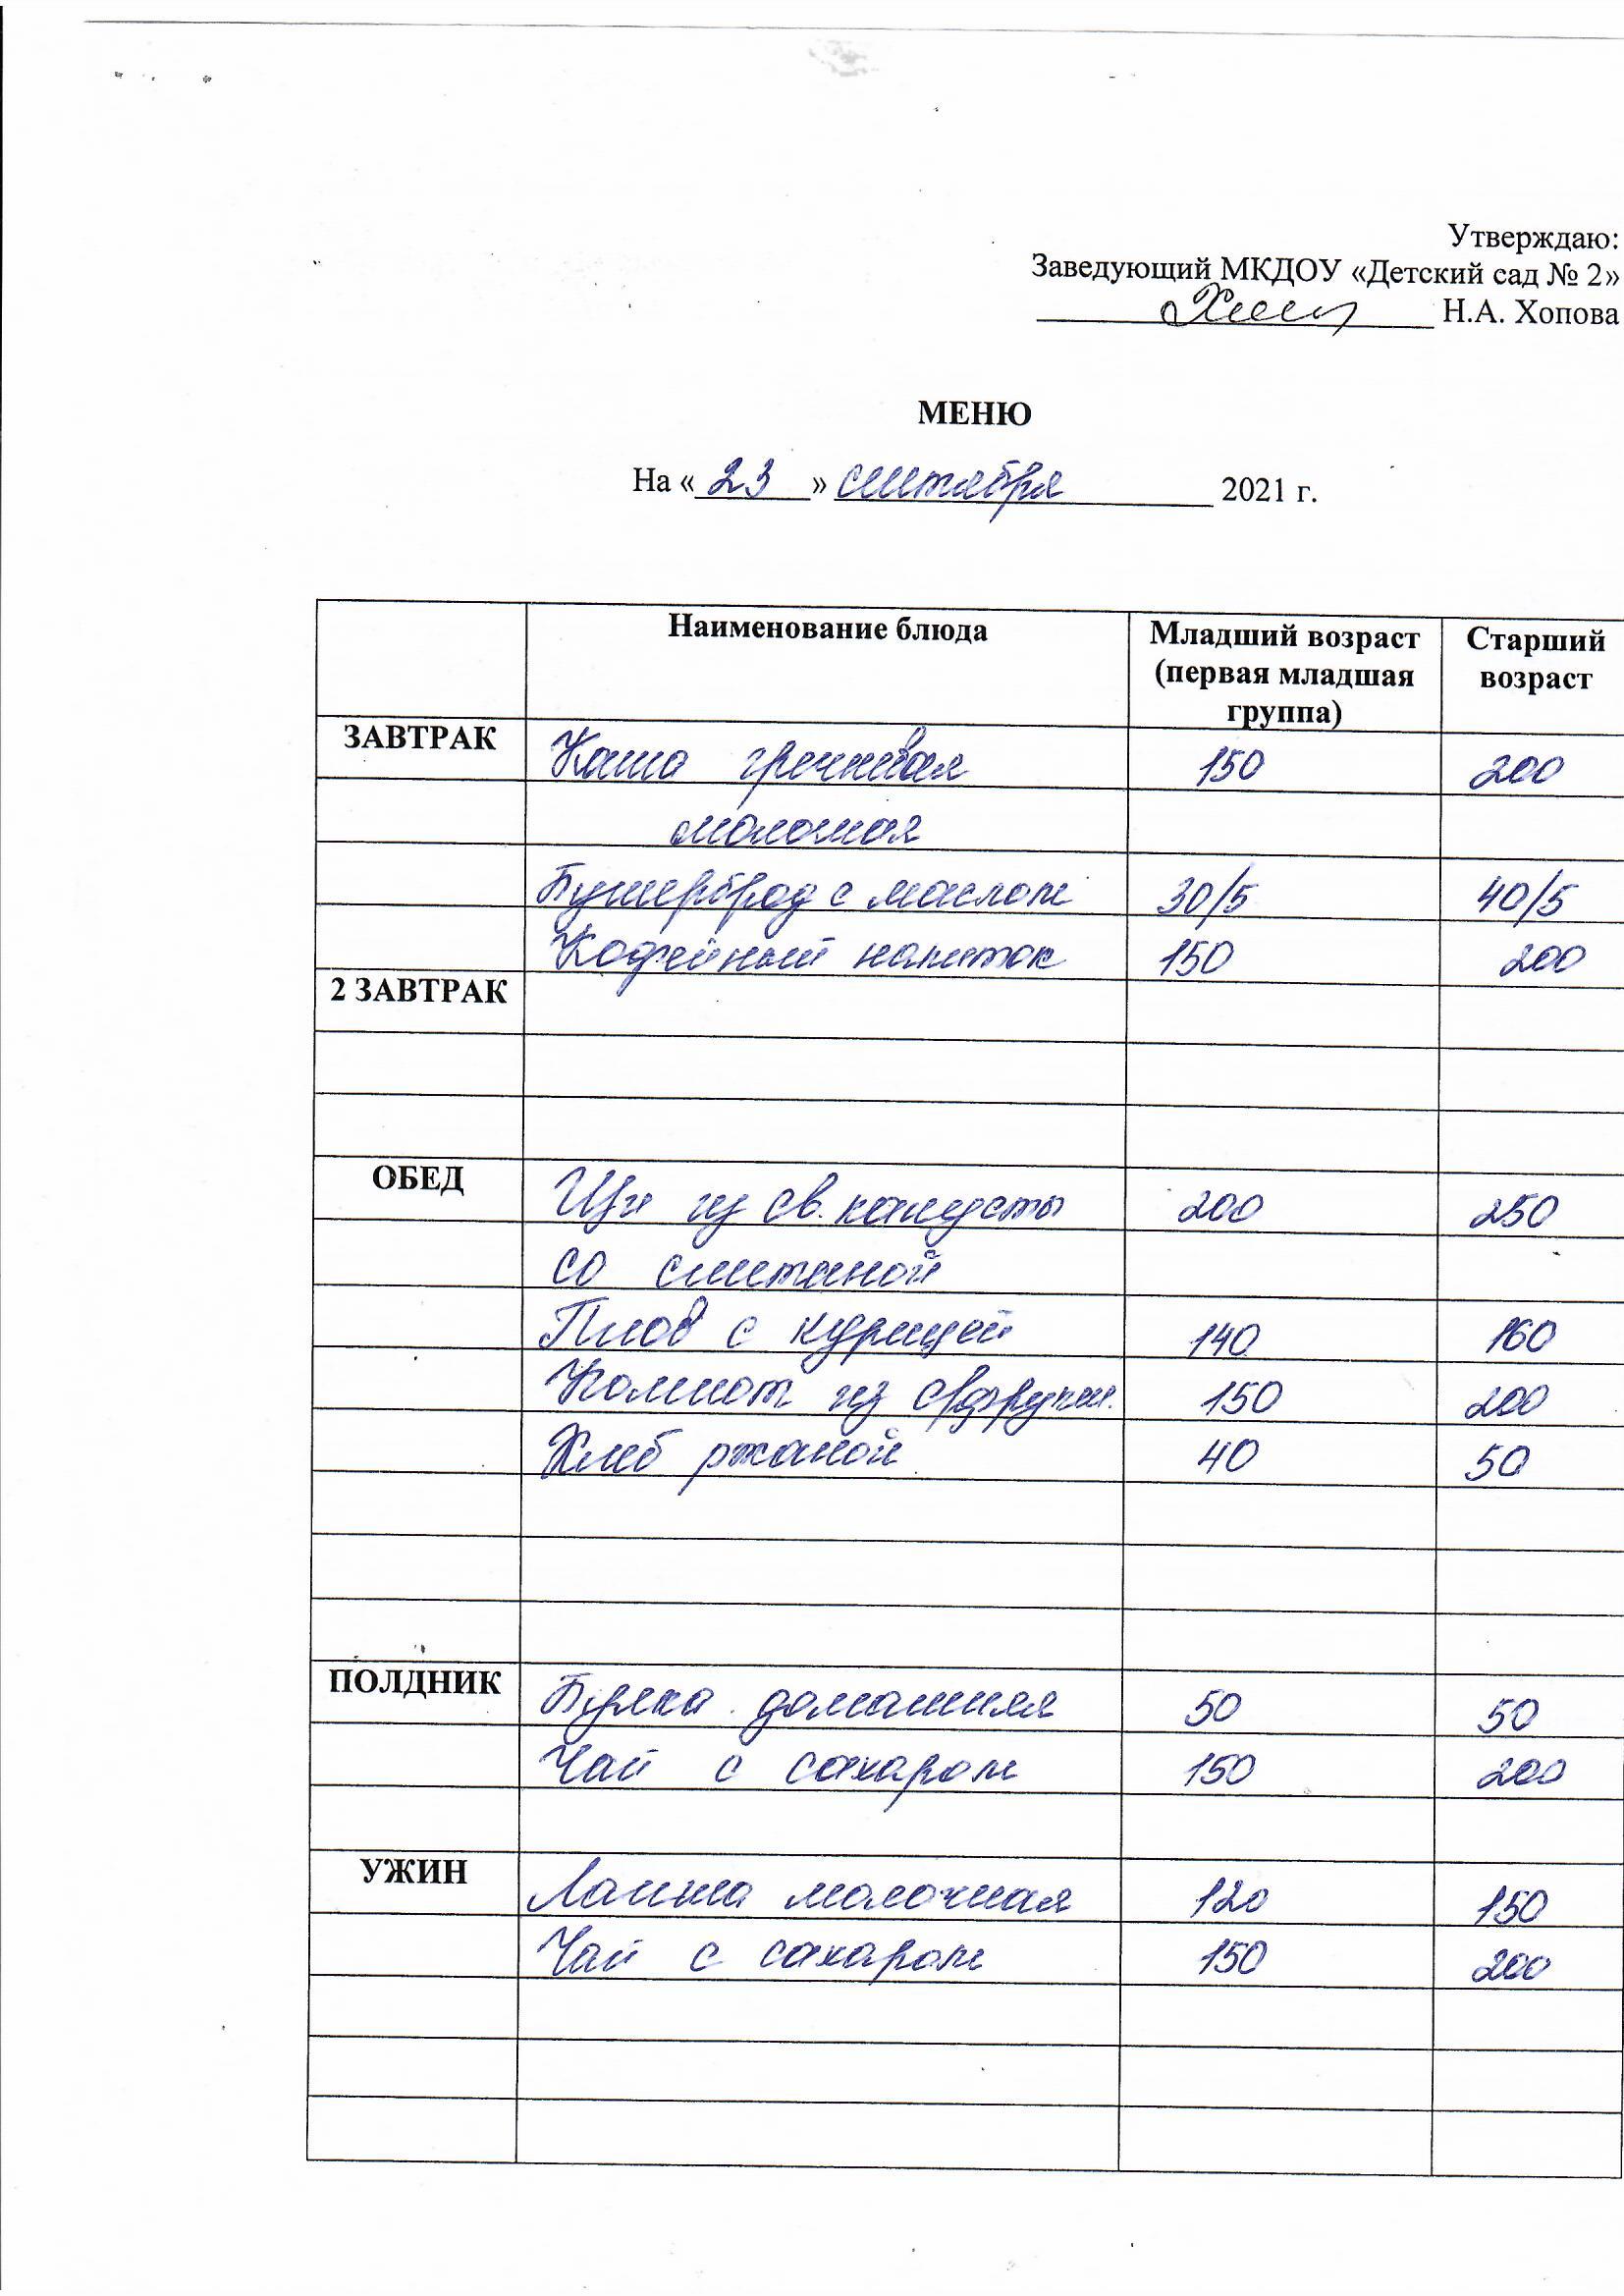 Утверждаю:
Заведующий МКДОУ «Детский сад № 2»
Н.А. Хопова
МЕНЮ
На « 23 » сентября 2021 г.
Наименование блюда Младший возраст (первая младшая группа) Старший возраст
ЗАВТРАК Каша гречневая 150 200
молочная
Бутерброд с маслом 30/5 40/5
Кофейный напиток 150 200
2 ЗАВТРАК
ОБЕД Щи из св. капусты 200 250
со сметаной
Плов с курицей 140 160
Компот из с/фрукт. 150 200
Хлеб ржаной 40 50
ПОЛДНИК Булка домашняя 50 50
Чай с сахаром 150 200
УЖИН Лапша молочная 120 150
Чай с сахаром 150 200